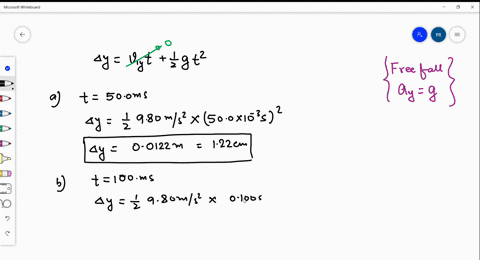 Microsoft Whiteboard
FR
Δy = v₁yt + ½gt² 0
{Free fall
ay = g}
a) t = 50.0ms
Δy = ½ 9.80 m/s² × (50.0×10⁻³s)²
Δy = 0.0122m = 1.22cm
b) t = 100.ms
Δy = ½ 9.80 m/s² × 0.100s